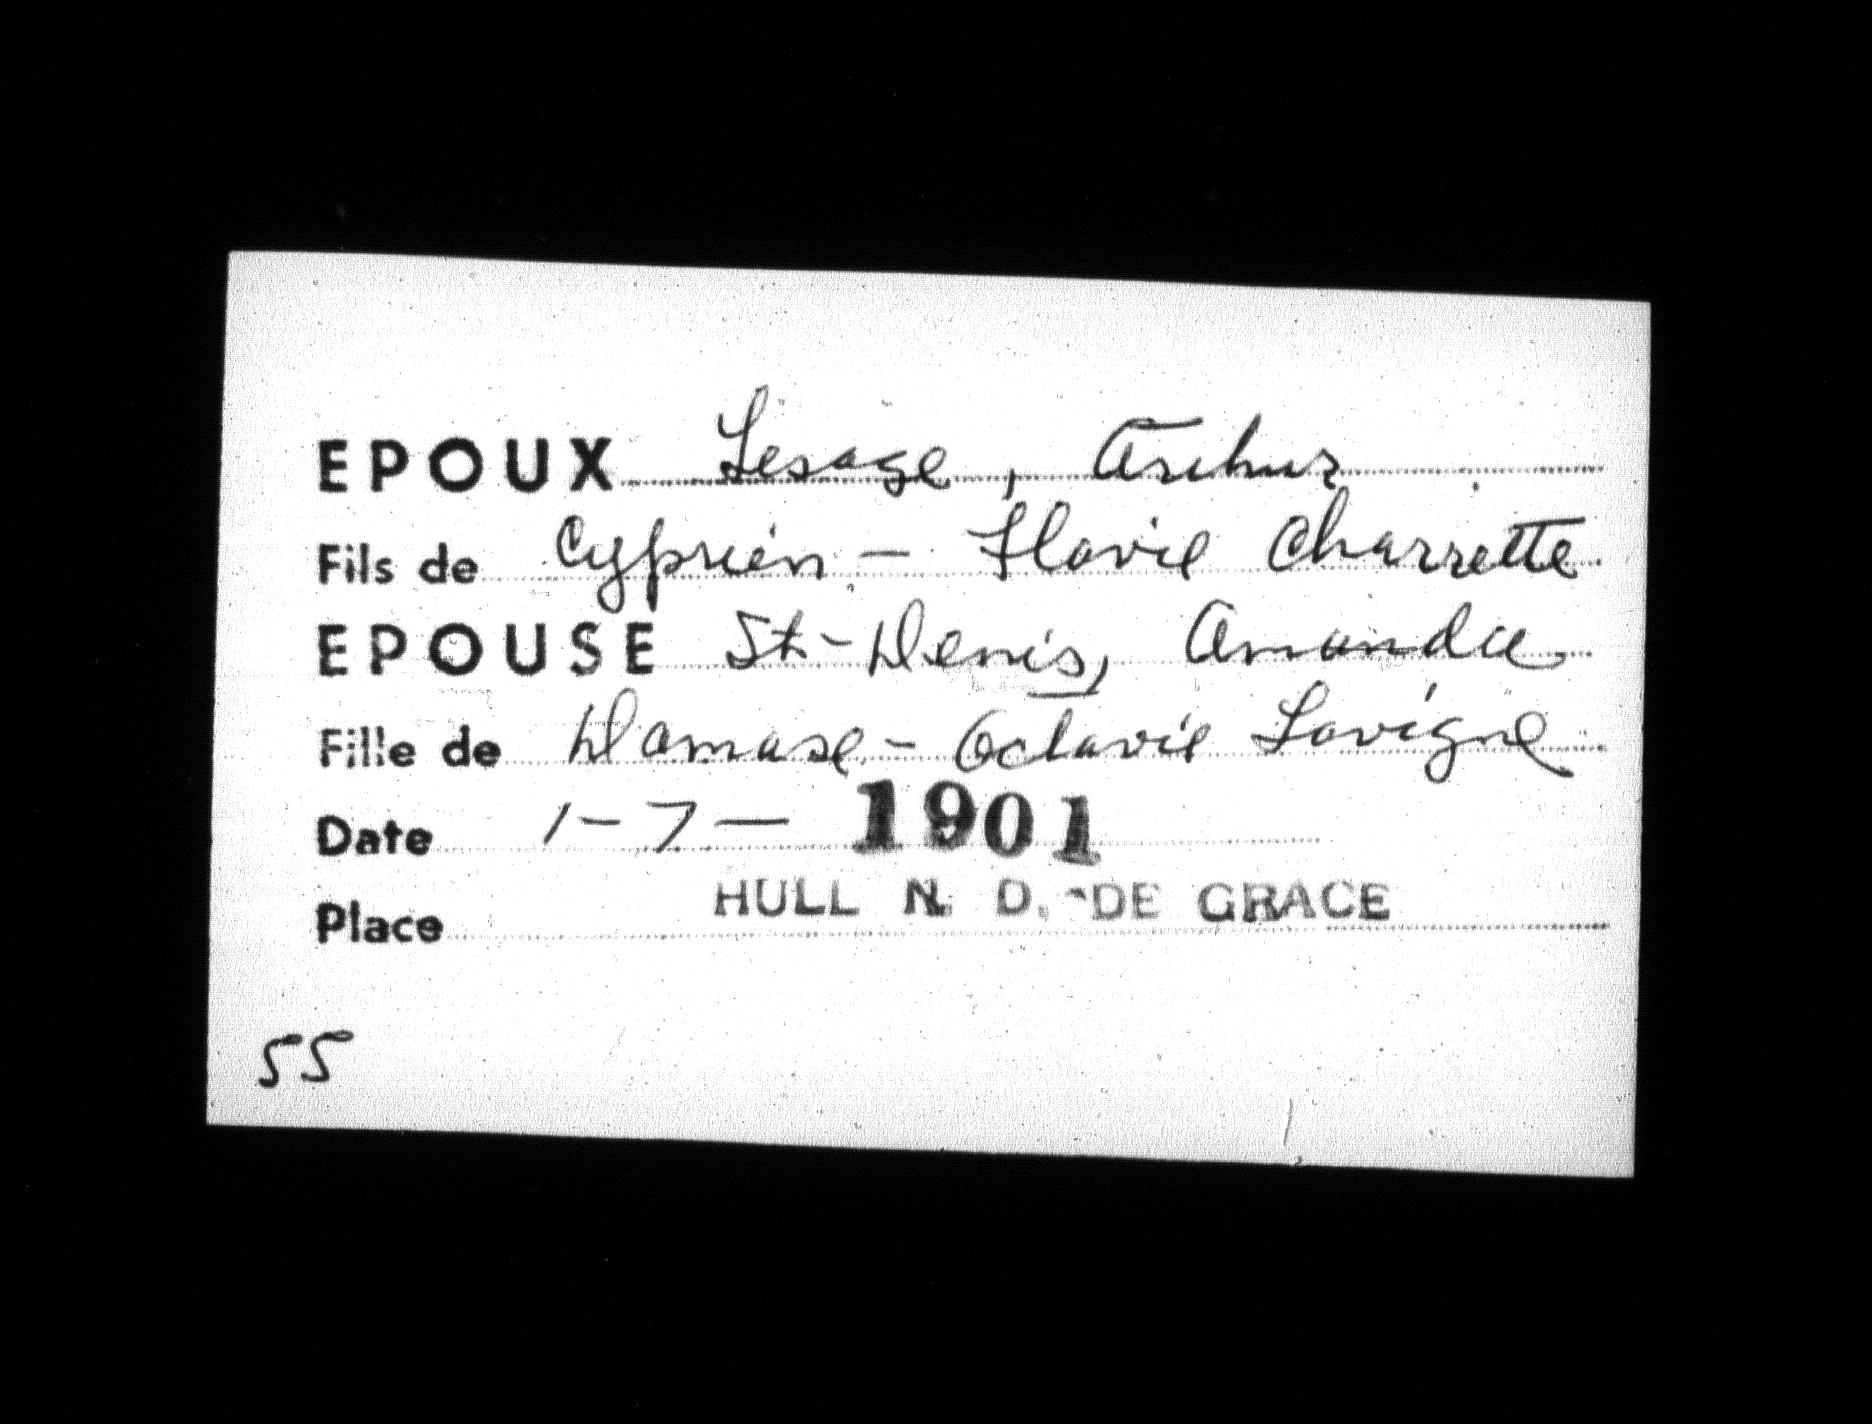 EPOUX Lesage, Arthur
Fils de Cyprien - Flavie Charrette
EPOUSE St-Denis, Amanda
Fille de Damase - Octavie Lavigne
Date 1-7- 1901
Place HULL N. D. -DE GRACE
55